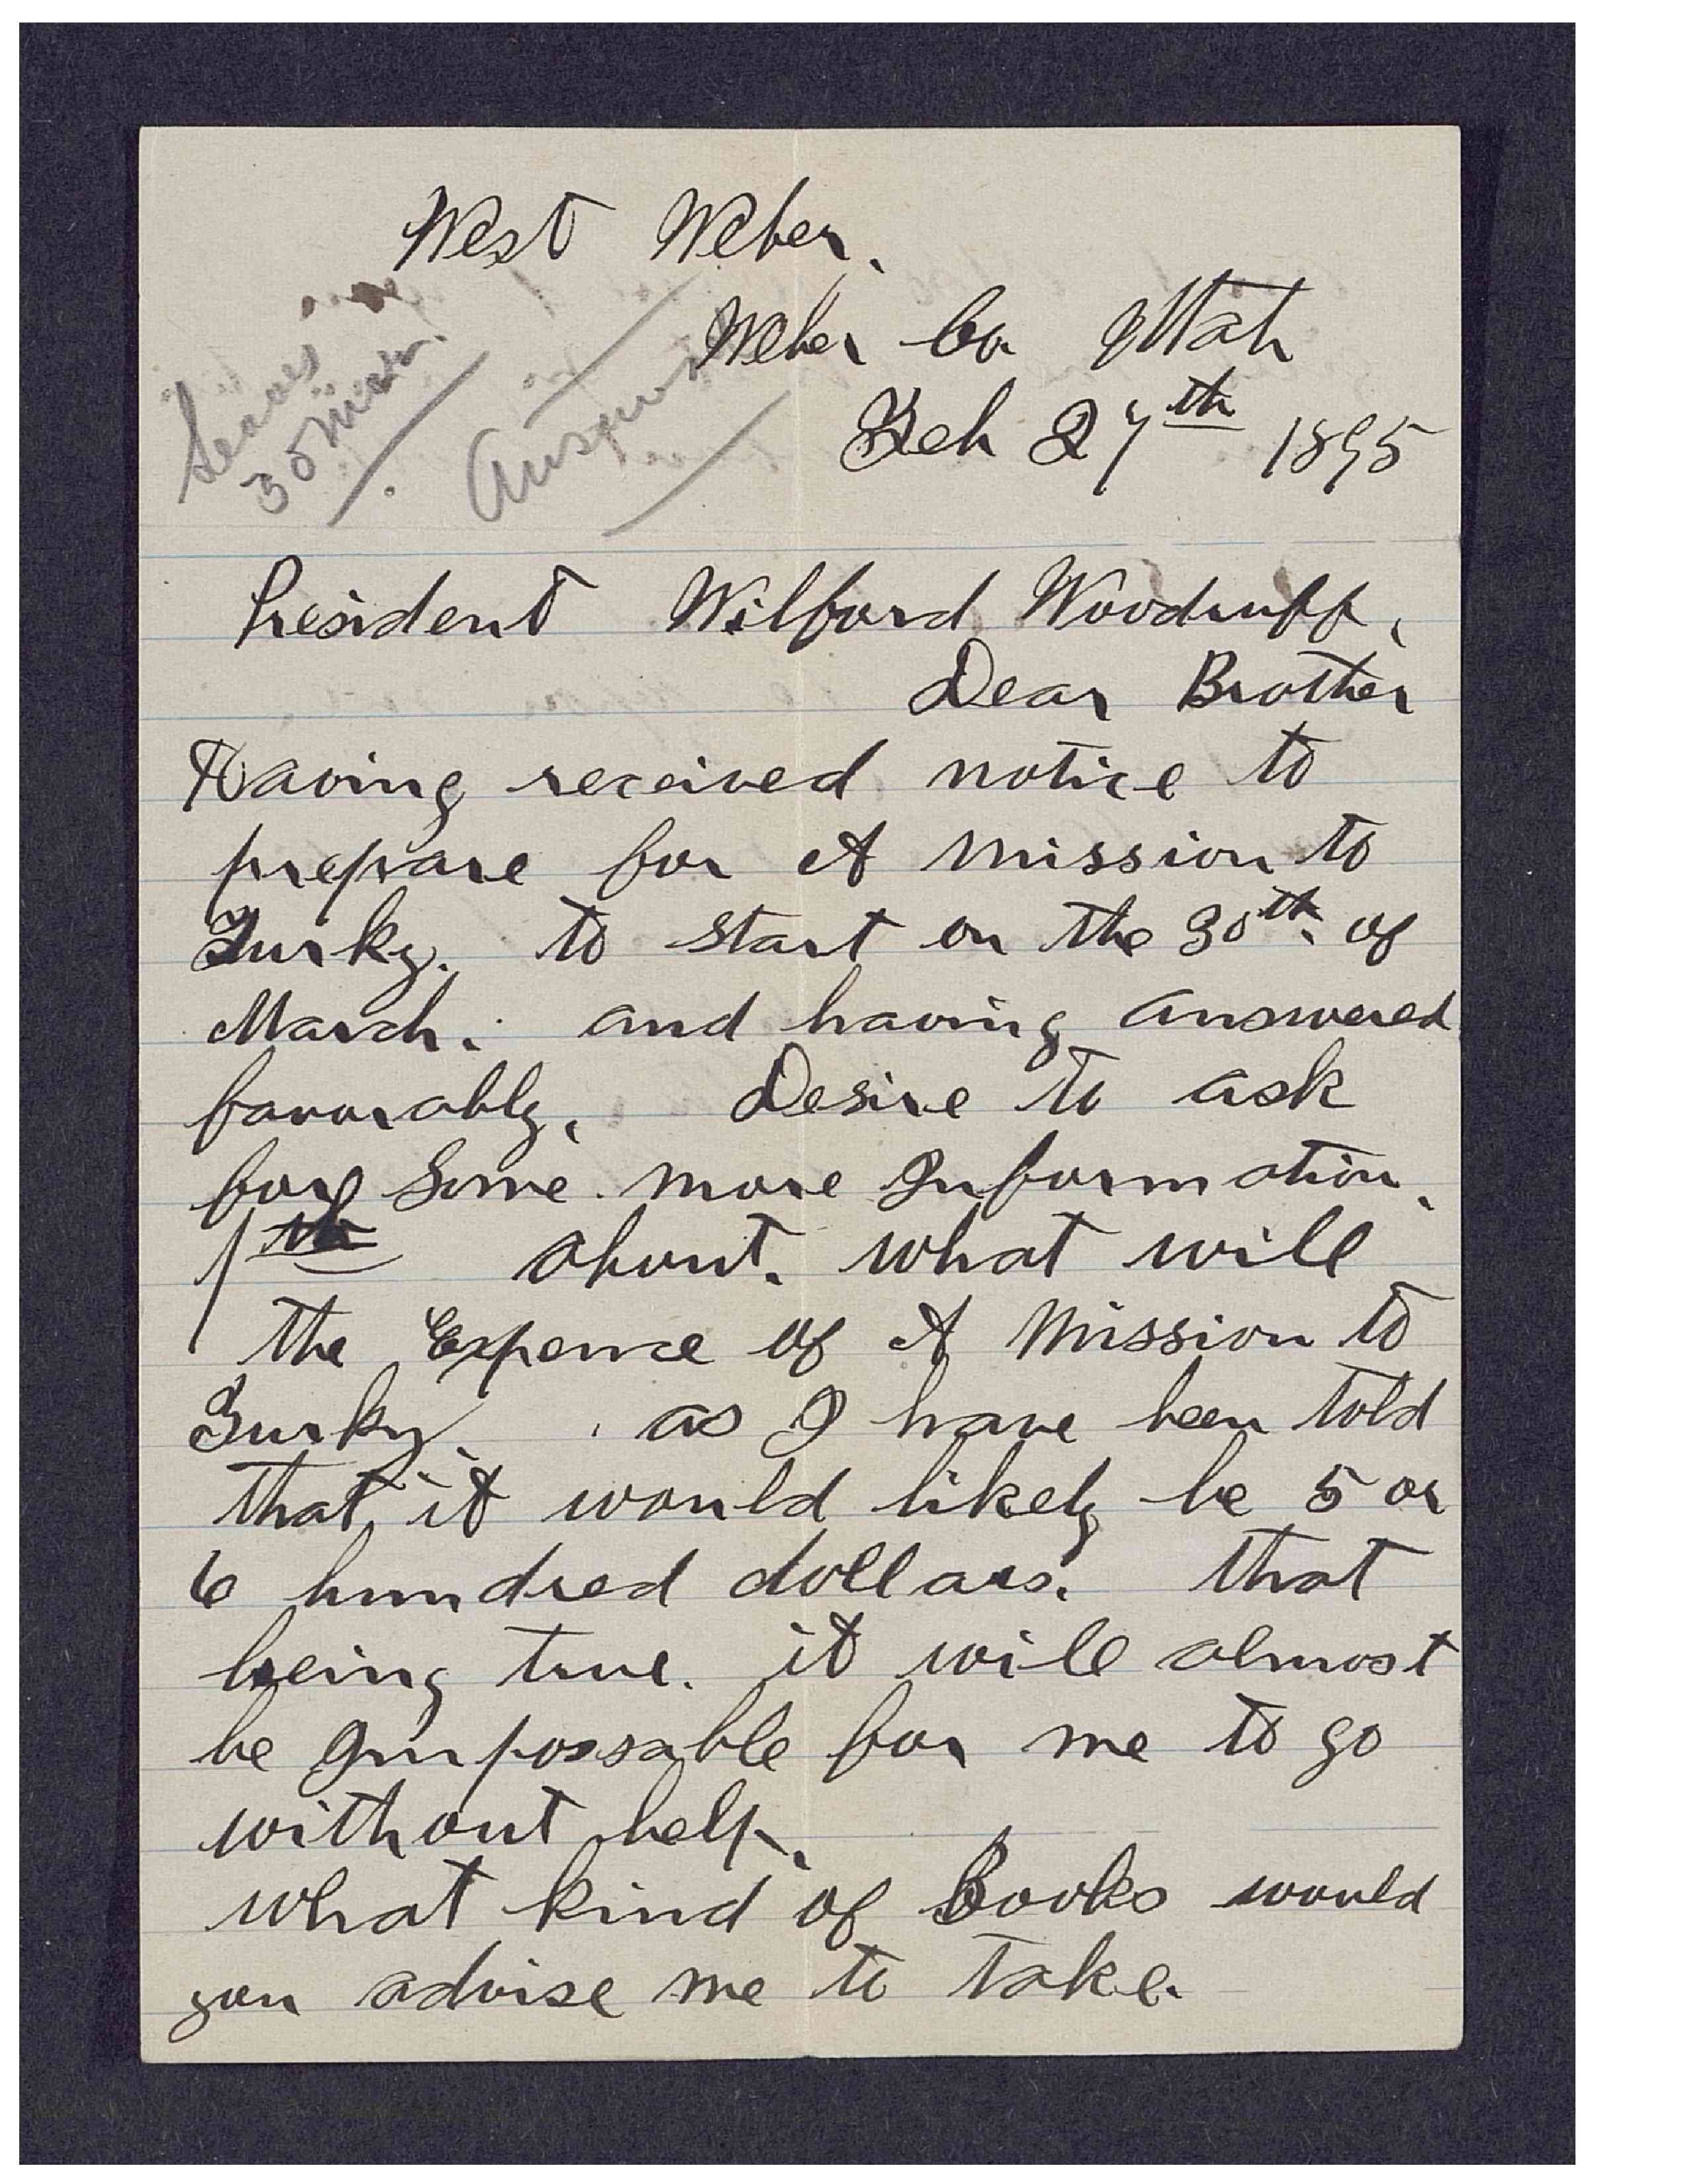 West Weber.
Weber Co. Utah
Feb 27th 1895
Leaves in
30 Mar.
Answered
President Wilford Woodruff,
Dear Brother
Having received notice to
prepare for A Mission to
Turky. to start on the 30th. of
March. and having answered
favorably, Desire to ask
for Some more Information.
1th about. what will
the Expence of A Mission to
Turky. as I have been told
that it would likely be 5 or
6 hundred dollars. that
being true. it will almost
be Impossable for me to go
without help.
what kind of Books would
you advise me to take.